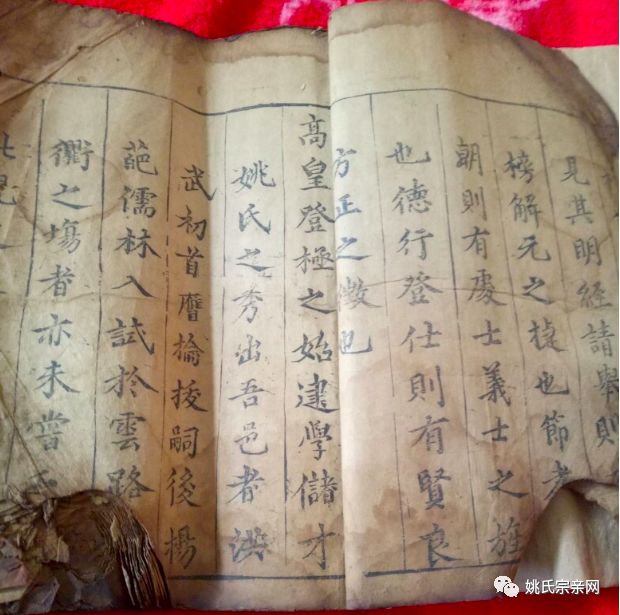 見其明經請舉則
榜解元之捷也節
朝則有處士義士之旌
也德行登仕則有賢良
方正之徵也
高皇登極之始建學儲才
姚氏之秀出吾邑者洪
武初首膺掄拔嗣後揚
葩儒林入試於雲路
衢之塲者亦未嘗
姚氏宗亲网